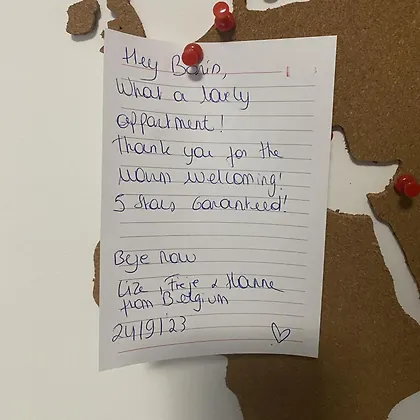 Hey Bonin,
What a lovely
appartment!
Thank you for the
warm welcoming!
5 stars Garanteed!
Beje now
Lize, Freje & Hanne
from Belgium
24/9/23